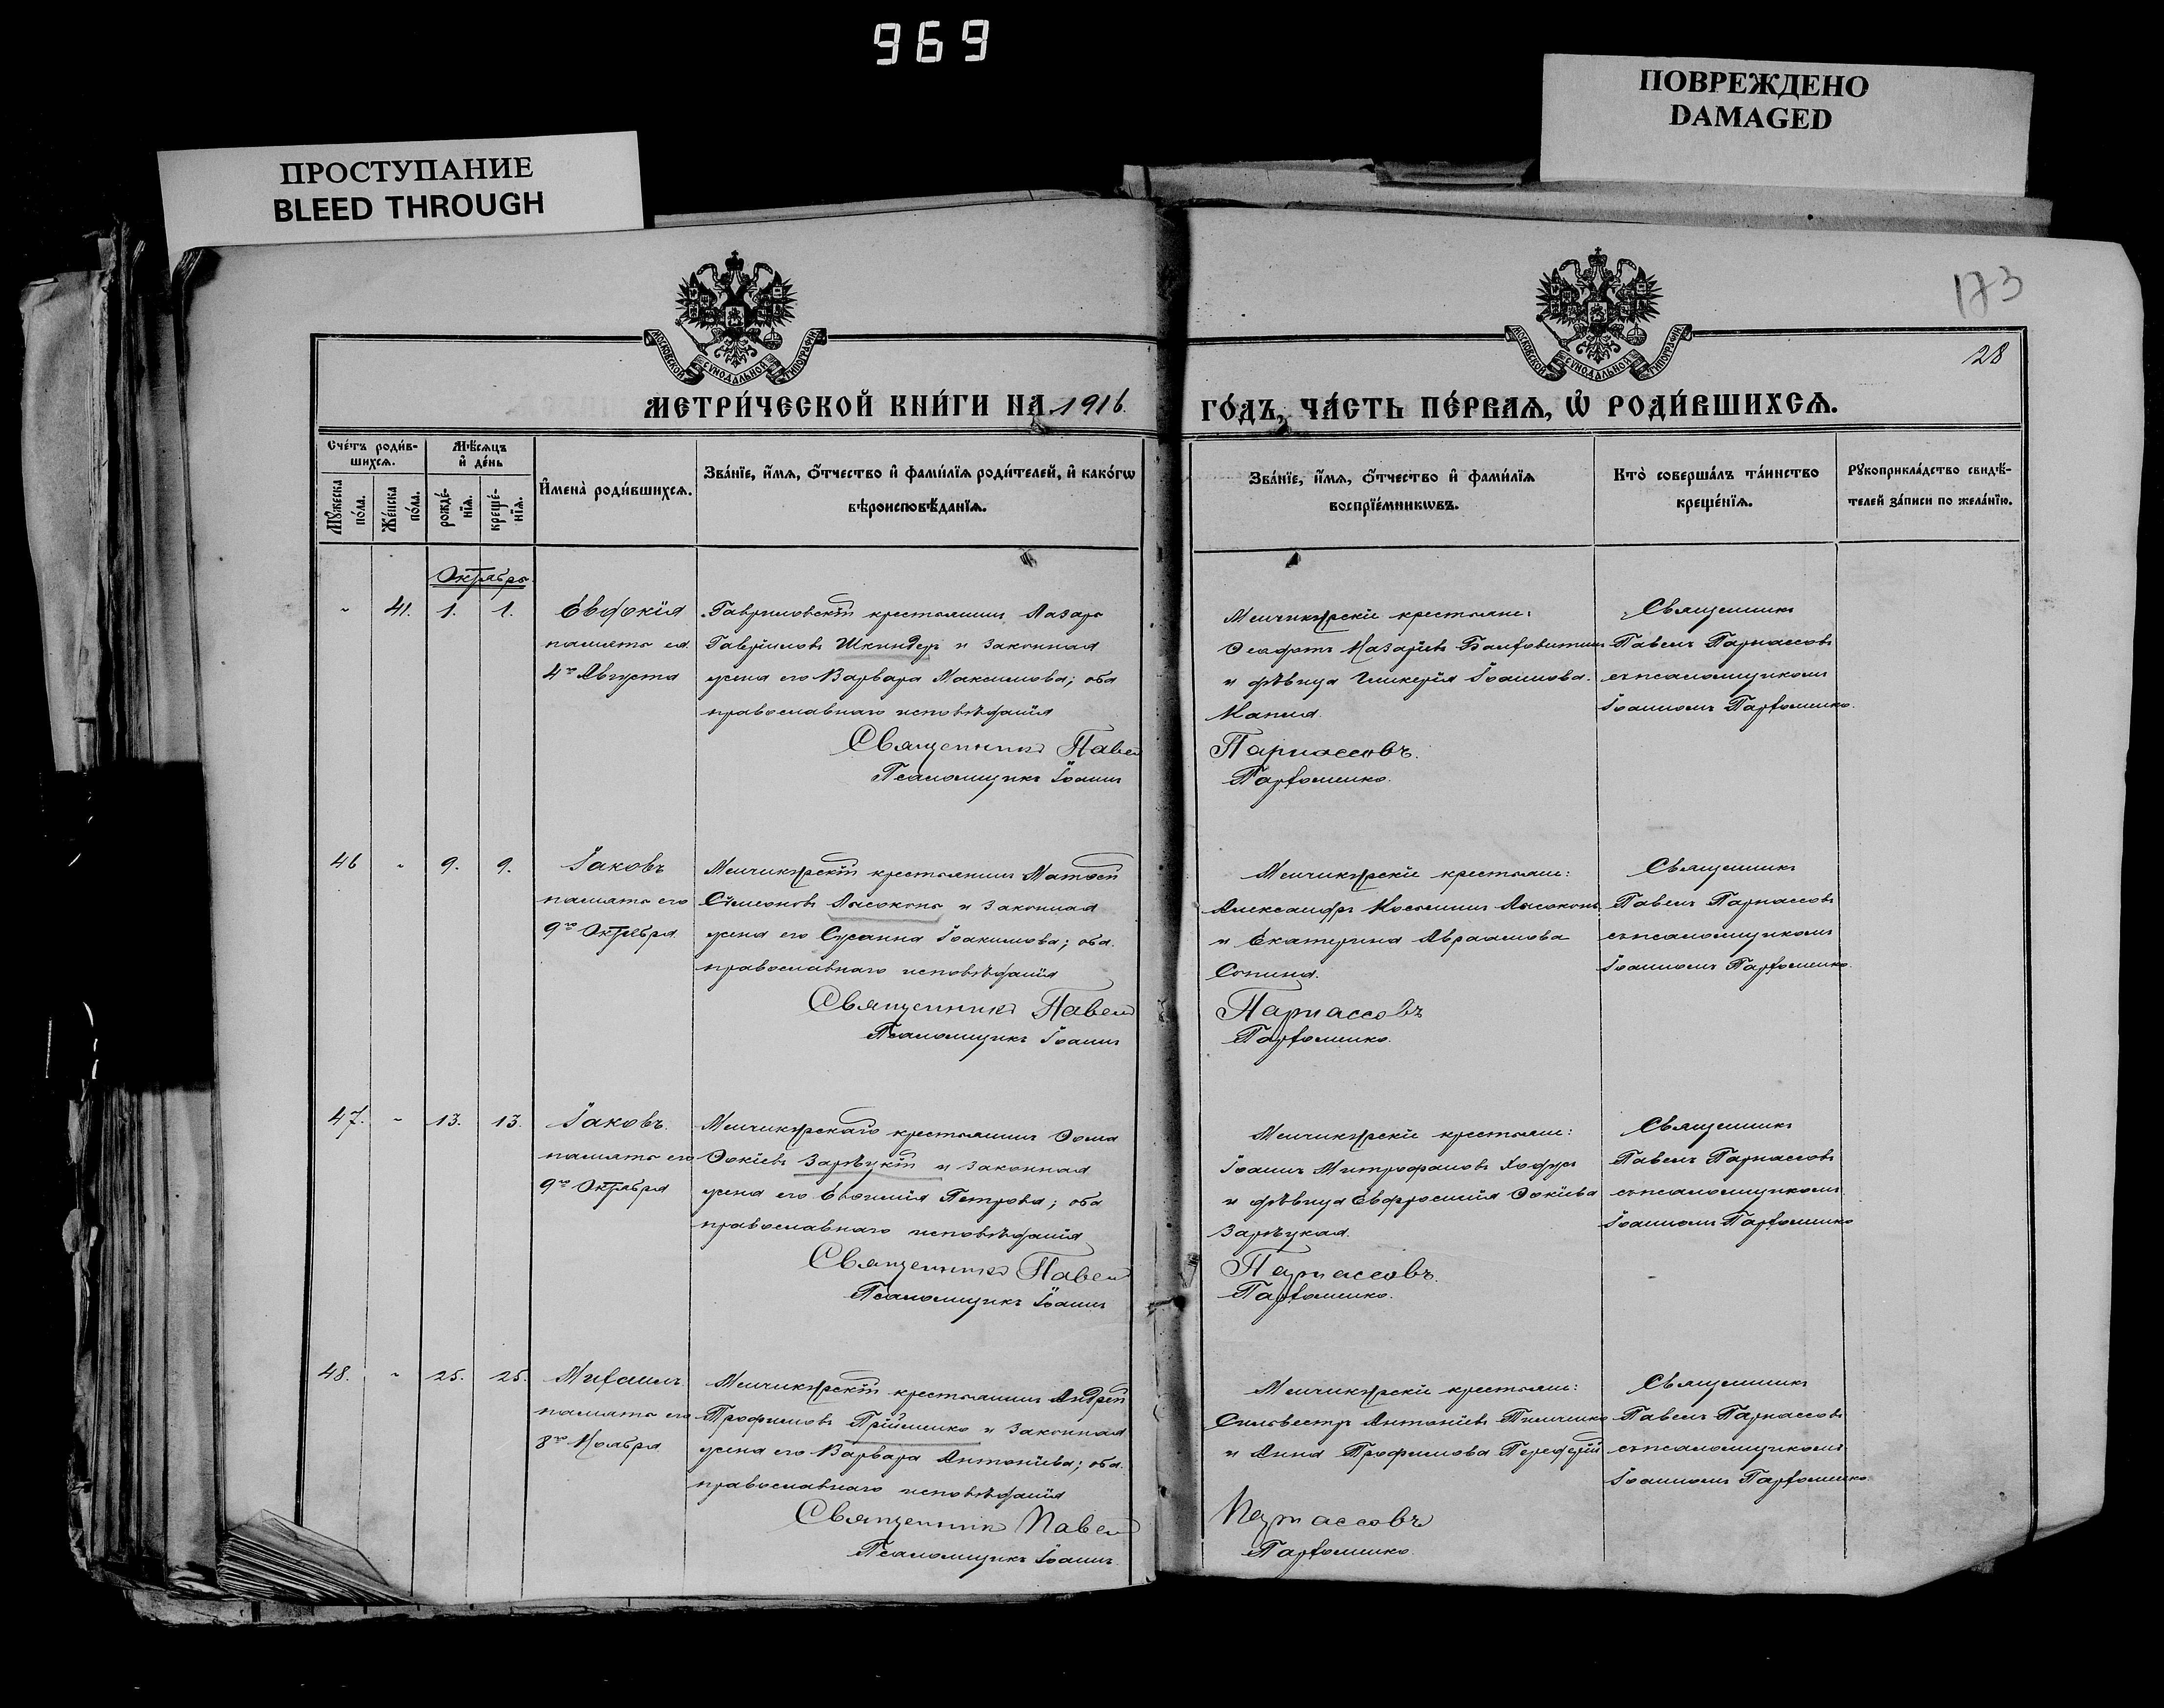 969
ПОВРЕЖДЕНО
DAMAGED
ПРОСТУПАНИЕ
BLEED THROUGH
173
28
МОСКОВСКОЙ СѴНОДАЛЬНОЙ ТИПОГРАФІИ
МОСКОВСКОЙ СѴНОДАЛЬНОЙ ТИПОГРАФІИ
МЕТРИ́ЧЕСКОЙ КНИ́ГИ НА 1916.
ГО́ДЪ, ЧА́СТЬ ПЕ́РВАЯ, Ѡ҆ РОДИ́ВШИХСЯ.
Сче́тъ роди́в-
шихся.
Мѣ́сяцъ
и҆ де́нь
Мꙋ́жеска
по́ла.
Же́нска
по́ла.
рожде́-
нїя.
креще́-
нїя.
И҆мена̀ роди́вшихся.
Зва́нїе, и҆́мя, ѻ҆́тчество и҆ фами́лїя роди́телей, и҆ како́гѡ
вѣроисповѣ́данїя.
Зва́нїе, и҆́мя, ѻ҆́тчество и҆ фами́лїя
воспрїе́мникѡвъ.
Кто̀ соверша́лъ та́инство
креще́нїя.
Рꙋкоприкла́дство свидѣ́-
телей за́писи по жела́нїю.
Октябрь.
„ 41. 1. 1.
Евдокія
память ея
4го Августа
Гавриловскій крестьянинъ Лазарь
Гавріиловъ Шкиндеръ и законная
жена его Варвара Максимова; оба
православнаго исповѣданія
Священникъ Павелъ
Псаломщикъ Іоаннъ
Менчикурскіе крестьяне:
и дѣвица Гликерія Іоаннова
Парнассовъ.
Пархоменко.
Священникъ
Павелъ Парнассовъ
съ псаломщикомъ
Іоанномъ Пархоменко.
46 „ 9. 9.
Іаковъ
память его
9го Октября
Менчикурскій крестьянинъ Матѳей
Сѵмеоновъ Лысоконь и законная
жена его Сусанна Іоакимова; оба
православнаго исповѣданія
Священникъ Павелъ
Псаломщикъ Іоаннъ
Менчикурскіе крестьяне:
Александръ Косьминъ Лысоконь
и Екатерина Авраамова
Сопина.
Парнассовъ
Пархоменко.
Священникъ
Павелъ Парнассовъ
съ псаломщикомъ
Іоанномъ Пархоменко.
47. „ 13. 13.
Іаковъ.
память его
9го Октября
Менчикурскаго крестьянинъ Ѳома
Ѳокіевъ Зарѣцкій и законная
жена его Евѳимія Петрова; оба
православнаго исповѣданія
Священникъ Павелъ
Псаломщикъ Іоаннъ
Менчикурскіе крестьяне:
Іоаннъ Митрофановъ
и дѣвица Евфросинія Ѳокіева
Зарѣцкая.
Парнассовъ.
Пархоменко.
Священникъ
Павелъ Парнассовъ
съ псаломщикомъ
Іоанномъ Пархоменко
48. „ 25. 25.
Михаилъ.
память его
8го Ноября
Менчикурскій крестьянинъ Андрей
Трофимовъ Прійменко и законная
жена его Варвара Антоніева; оба
православнаго исповѣданія
Священникъ Павелъ
Псаломщикъ Іоаннъ.
Менчикурскіе крестьяне:
Сильвестръ Антоніевъ Тимченко
и Анна Трофимова Передерій
Парнассовъ
Пархоменко.
Священникъ
Павелъ Парнассовъ
съ псаломщикомъ
Іоанномъ Пархоменко.